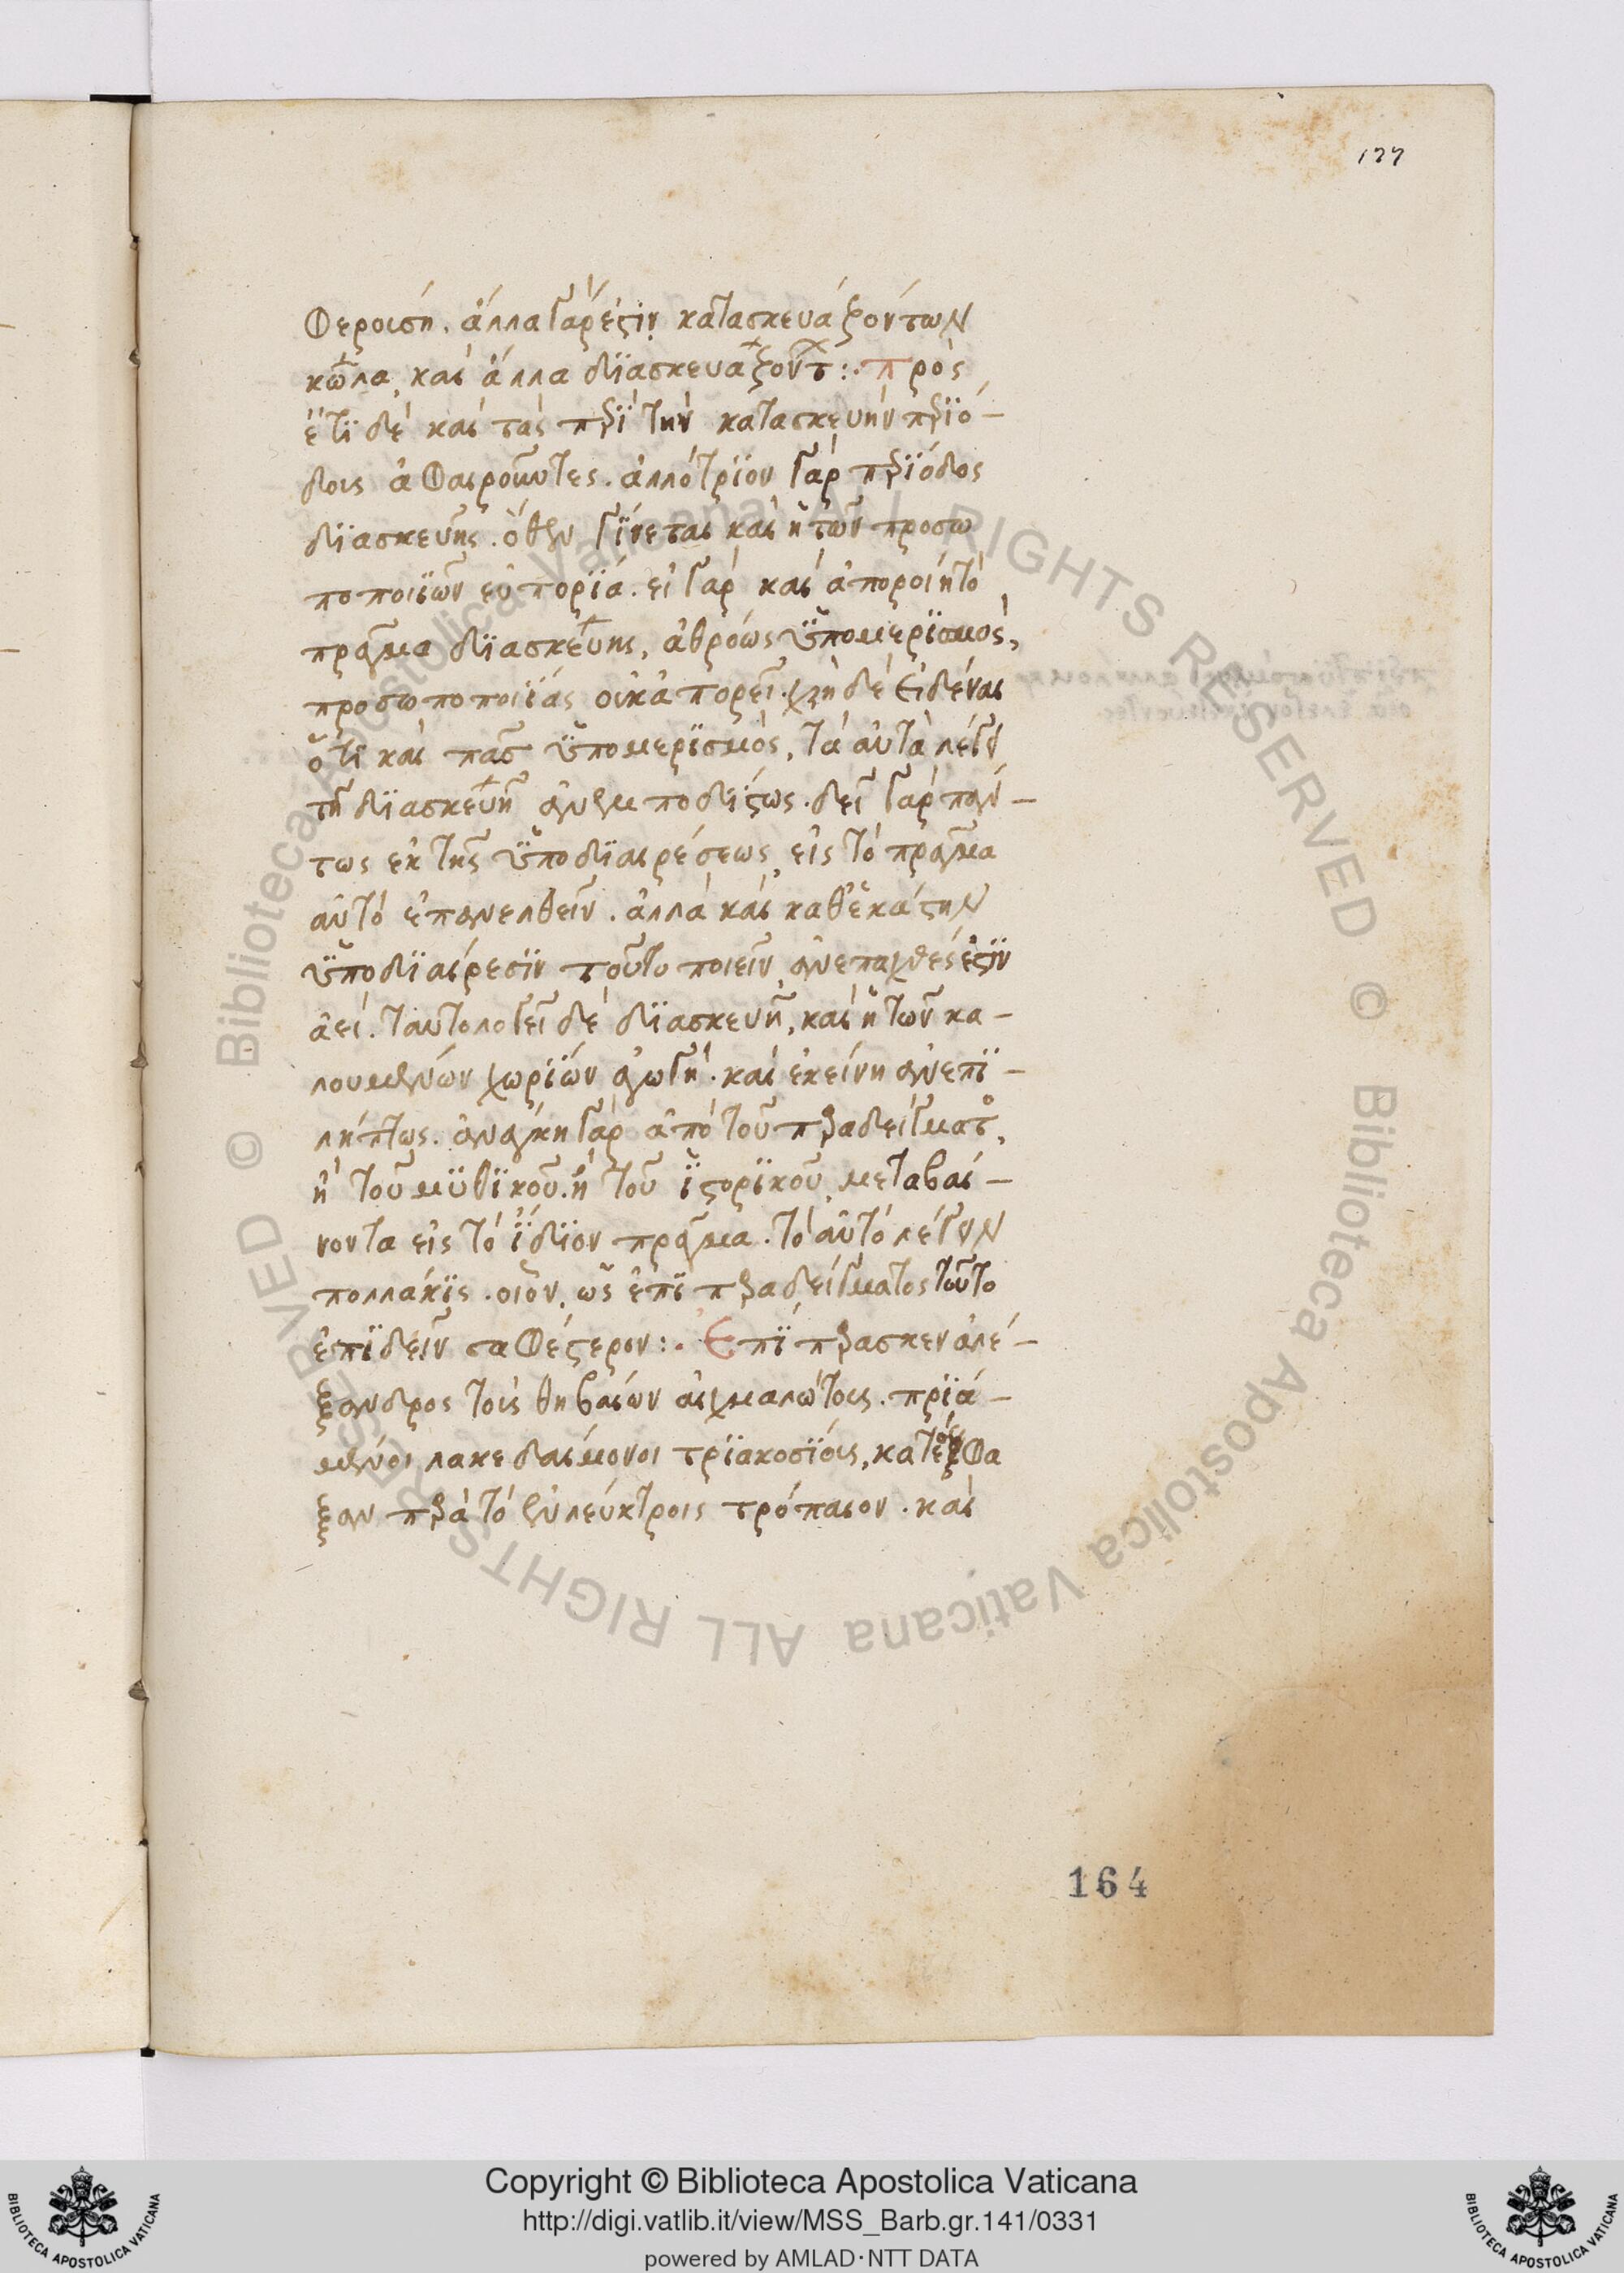 177
φεροισή. ἄλλα γάρ ἐστιν κατασκευάζόντων
κῶλα, καὶ ἄλλα διασκευαζοντ:. πρὸς
ἔτι δὲ καὶ τὰς περὶ τὴν κατασκευὴν περιό-
δοις ἀφαιροῦντες. ἀλλότριον γὰρ περίοδος
διασκευῆς. ὅθεν γίνεται καὶ ἡ τῶν προσω
ποποιϊῶν εὐπορϊά. εἰ γὰρ καὶ ἀποροίη τὸ
πρᾶγμα διασκεύης, ἀθρόως ὑπομερισμὸς,
προσωποποιϊάς οὐκ ἀπορεῖ. χρὴ δὲ εἰδέναι
ὅτι καὶ πασ ὑπομερισμὸς, τὰ αὐτὰ λέγειν
τῇ διασκευῇ ἀνεμποδίστως. δεῖ γὰρ πάν-
τως ἐκ τῆς ὑποδιαιρέσεως, εἰς τὸ πρᾶγμα
αὐτὸ ἐπανελθεῖν. ἀλλὰ καὶ καθ ἑκάστην
ὑποδιαίρεσιν τοῦτο ποιεῖν, ἀνεπαχθές ἐστιν
ἀεί. ταυτολογεῖ δὲ διασκευῆ, καὶ ἡ τῶν κα-
λουμένων χωρίων ἀγωγή. καὶ ἐκείνη ἀνεπι-
λήπτως. ἀνάγκη γὰρ ἀπὸ τοῦ παραδείγματος,
ἢ τοῦ μυθικοῦ. ἢ τοῦ ἱστορικοῦ, μεταβαί-
νοντα εἰς τὸ ἴδιον πρᾶγμα. τὸ αὐτὸ λέγειν
πολλάκις. οἷον, ὡς ἐπὶ παραδείγματος τοῦτο
ἐπιδεῖν σαφέστερον:. Ἐπίπρασκεν ἀλέ-
ξανδρος τοὺς θηβαίων αἰχμαλώτοις. πριά-
μενοι λακεδαιμόνοι τριακοσίοις, κατέσφα
ξαν παρὰ τὸ ἐν λεύκτροις τρόπαιον. καὶ
164
Copyright © Biblioteca Apostolica Vaticana
http://digi.vatlib.it/view/MSS_Barb.gr.141/0331
powered by AMLAD·NTT DATA
BIBLIOTECA APOSTOLICA VATICANA
BIBLIOTECA APOSTOLICA VATICANA
© Biblioteca Apostolica Vaticana ALL RIGHTS RESERVED © Biblioteca Apostolica Vaticana ALL RIGHTS RESERVED